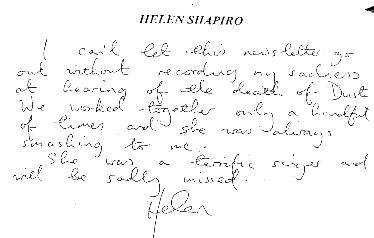 HELEN SHAPIRO
I can't let this newsletter go
out without recording my sadness
at hearing of the death of Dust
We worked together only a handful
of times and she was always
smashing to me.
She was a terrific singer and
will be sadly missed.
Helen